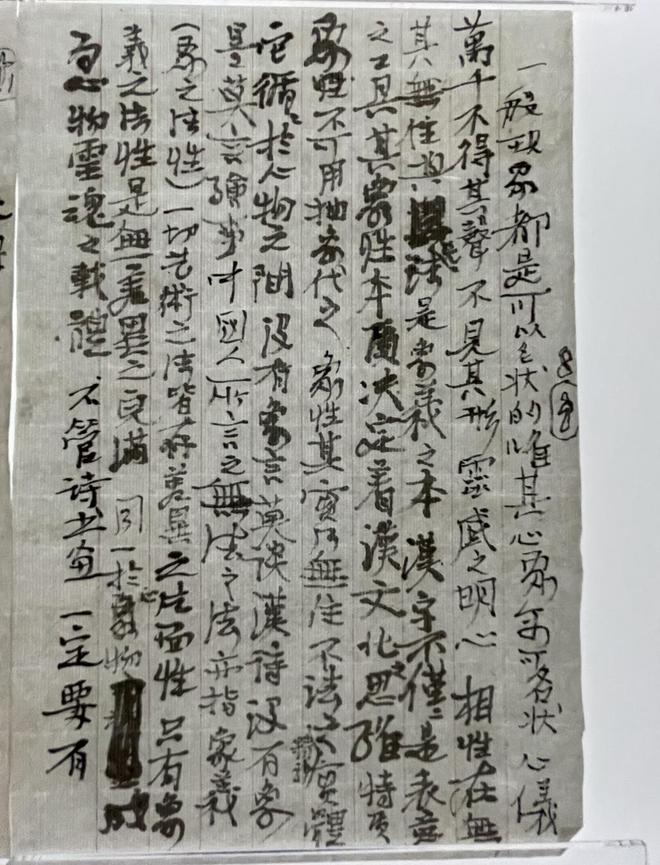 一般现象都是可以名状的唯其心象不可名状 心儀
萬千不得其聲不見其形 靈感之明心 相性在無
其無住 法是象義之本 漢字不僅是表意
之工具其象性本質決定着漢文化之思維特質
象性不可用抽象代之 象性其實乃無住不法 實體
它循於心物之間 没有象言莫談漢詩没有象
是莫言 中國人所言之無法之法亦指象義
(象之法性)一切艺術之法皆存差異之片面性 只有象
義之法性是無差異之完满 同一於心象物 成
為心物靈魂之載體 不管詩书画 一定要有